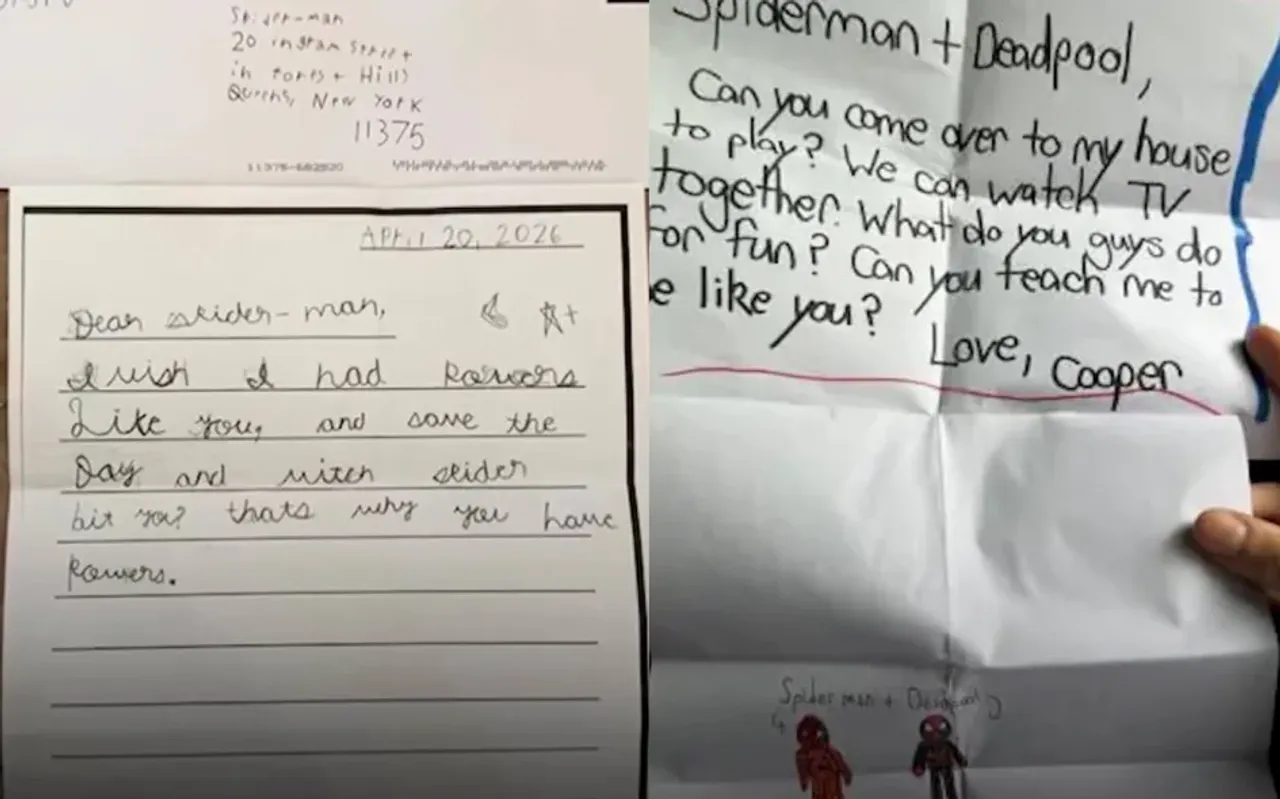 Spider-man
20 ingram street
in forest Hills
Queens, New York
11375
11375-682520
April 20, 2026
Dear spider-man,
I wish I had powers
Like you, and save the
Day and witch spider
bit you? thats why you have
powers.
Spiderman + Deadpool,
Can you come over to my house
to play? We can watch TV
together. What do you guys do
for fun? Can you teach me to
e like you?
Love, Cooper
Spider man + Deadpool